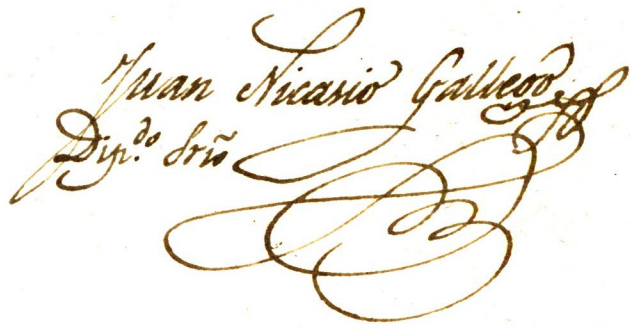 Juan Nicasio Gallego
Dip.do Srio